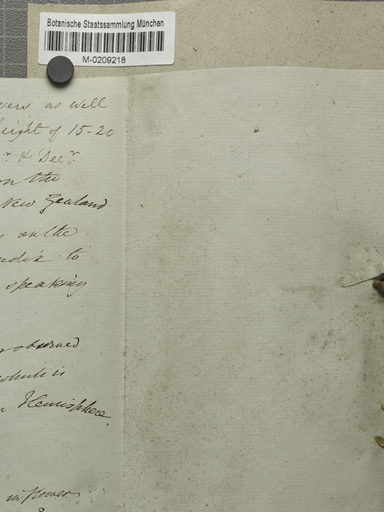 Botanische Staatssammlung München
M-0209218
as well
height of 15-20
r. & Decr.
on the
New Zealand
on the
to
speaking
observed
is
Hemisphere.
in flower